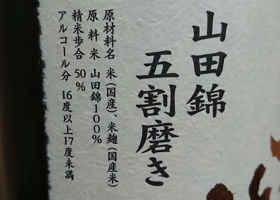 山田錦
五割磨き
原材料名 米(国産)、米麹(国産米)
原料米 山田錦100%
精米歩合 50%
アルコール分 16度以上17度未満